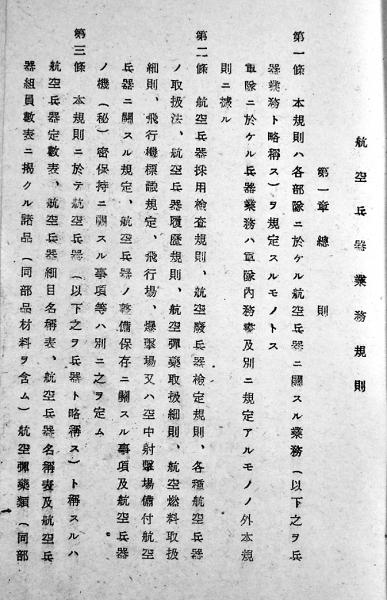 航空兵器業務規則
第一章 總則
第一條 本規則ハ各部隊ニ於ケル航空兵器ニ關スル業務(以下之ヲ兵
器業務ト略稱ス)ヲ規定スルモノトス
軍隊ニ於ケル兵器業務ハ軍隊內務書及別ニ規定アルモノノ外本規
則ニ據ル
第二條 航空兵器採用檢査規則、航空廢兵器檢定規則、各種航空兵器
ノ取扱法、航空兵器履歷規則、航空彈藥取扱細則、航空燃料取扱
細則、飛行機標識規定、飛行場、爆擊場又ハ空中射擊場備付航空
兵器ニ關スル規定、航空兵器ノ整備保存ニ關スル事項及航空兵器
ノ機(秘)密保持ニ關スル事項等ハ別ニ之ヲ定ム
第三條 本規則ニ於テ航空兵器(以下之ヲ兵器ト略稱ス)ト稱スルハ
航空兵器定數表、航空兵器細目名稱表、航空兵器名稱表及航空兵
器組員數表ニ揭クル諸品(同部品材料ヲ含ム)航空彈藥類(同部